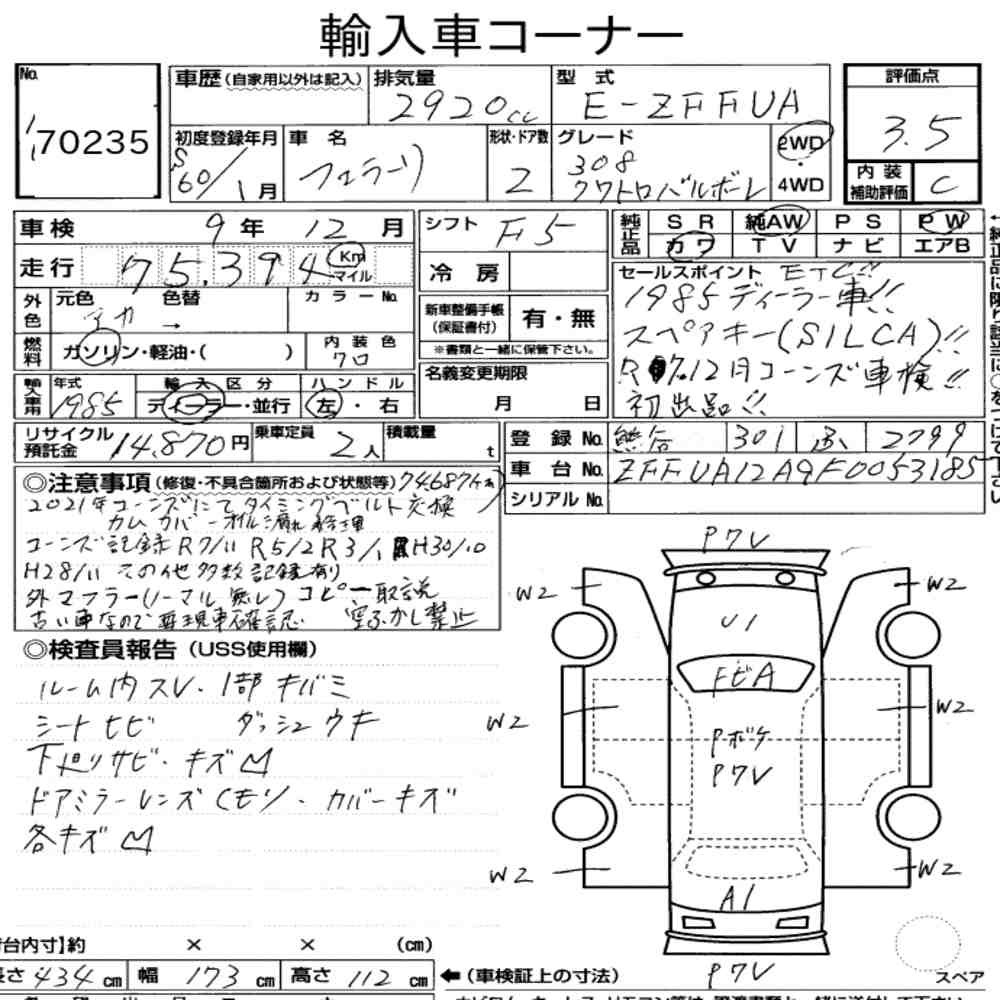 輸入車コーナー
No.
170235
車歴(自家用以外は記入)
排気量
2920cc
型式
E-ZFFUA
評価点
3.5
初度登録年月
S60/1月
車名
フェラーリ
形状・ドア数
2
グレード
308
クワトロバルボーレ
2WD
・
4WD
内装
補助評価
C
車検 9年 12月
シフト F5
純正品
SR 純AW PS PW
カワ TV ナビ エアB
走行 75,394 Km
マイル
冷房
セールスポイント ETC!!
1985 ディーラー車!!
スペアキー(SILCA)!!
R7.12月コーンズ車検!!
初出品!!
外色 元色 色替 カラーNo.
アカ →
新車整備手帳
(保証書付) 有・無
※書類と一緒に保管下さい。
燃料 ガソリン・軽油・( ) 内装色
クロ
名義変更期限
月 日
年式 輸入区分 ハンドル
1985 ディーラー・並行 左・右
リサイクル
預託金 14,870円
乗車定員 2人
積載量 t
登録No. 熊谷 301 2799
車台No. ZFFUA12A9F0053185
シリアルNo.
◎注意事項(修復・不具合箇所および状態等)74687Km
2021年コーンズにてタイミングベルト交換
カムカバーオイル漏れ修理
コーンズ記録 R7/11 R5/2 R3/1 H30/10
H28/11 その他多数記録有り
外マフラー(ノーマル無し) コピー取説
古い車なので要現車確認 空ふかし禁止
◎検査員報告(USS使用欄)
ルーム内スレ・1部キバミ
シートヒビ ダッシュウキ
下廻りサビ・キズ凹
ドアミラーレンズくもり・カバーキズ
各キズ凹
P7V
W2 W2
U1
FビA
W2 W2
Pボケ
P7V
W2 W2
A1
P7V
スペア
台内寸】約 × × (cm)
長さ 434cm 幅 173cm 高さ 112cm
←(車検証上の寸法)